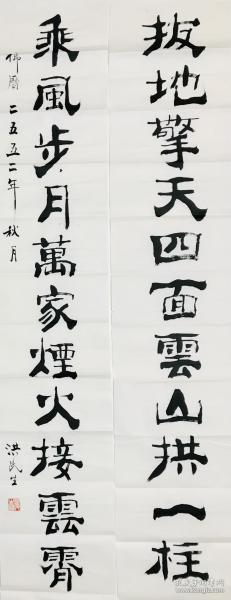 拔地擎天四面雲山拱一柱
乘風步月萬家煙火接雲霄
佛曆二五五二年秋月
洪民生